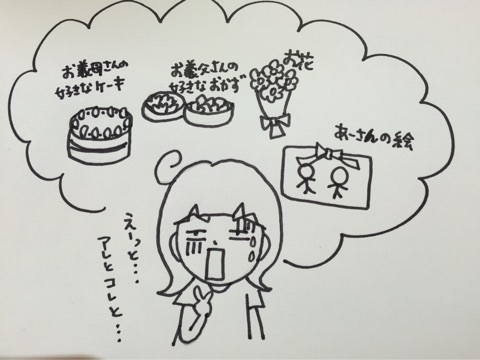 お義母さんの
好きなケーキ
お義父さんの
好きなおかず
お花
あーさんの絵
えーっと…
アレとコレと…